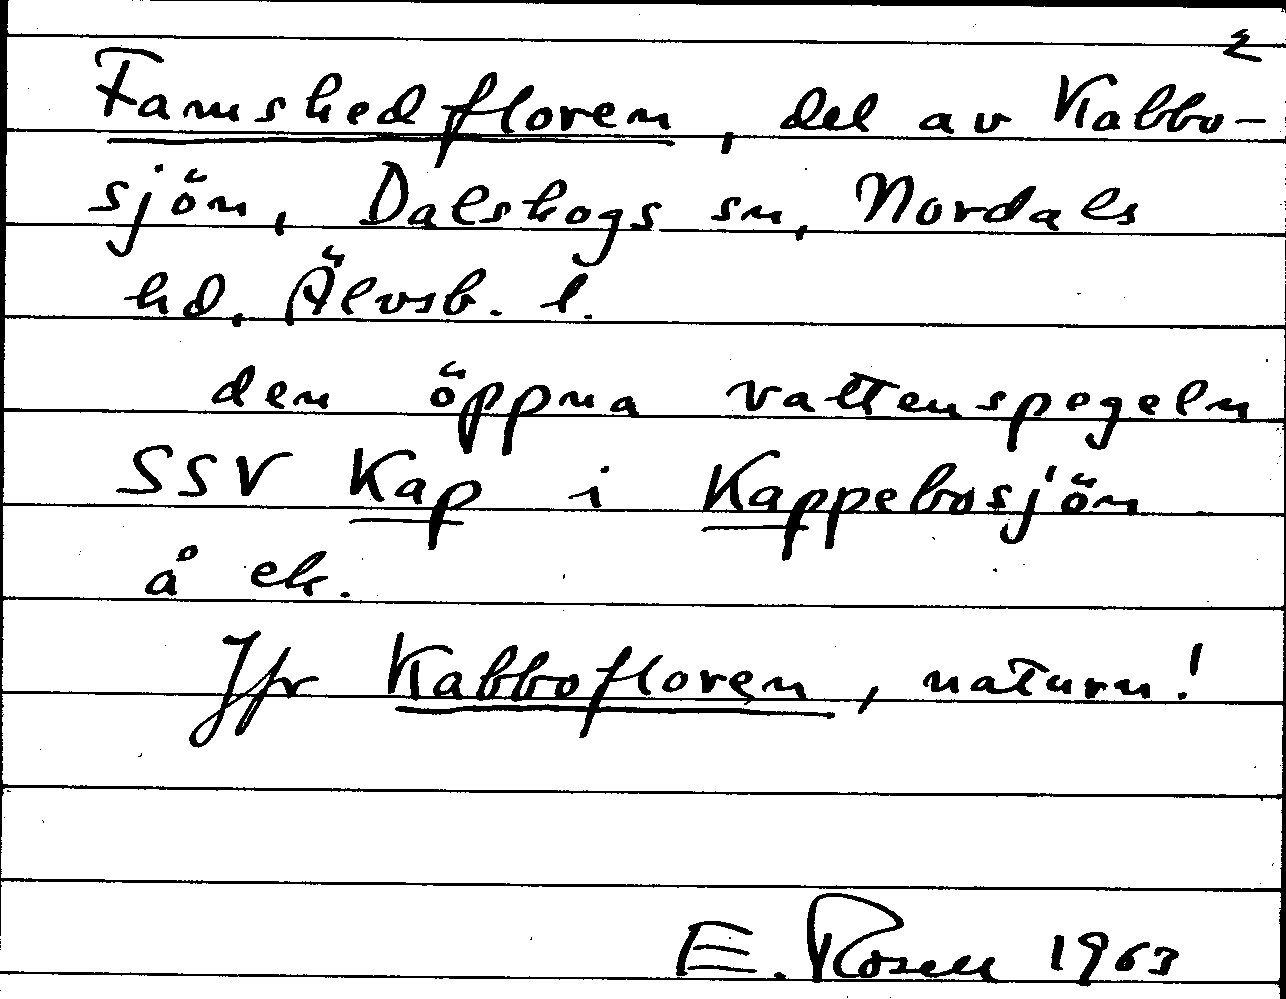 2
Famshedfloren, del av Kabbo-
sjön, Dalskogs sn, Nordals
hd, Älvsb. l.
den öppna vattenspegeln
SSV Kap i Kappebosjön
å ek.
Jfr Kabbofloren, naturn!
E. Rosell 1963